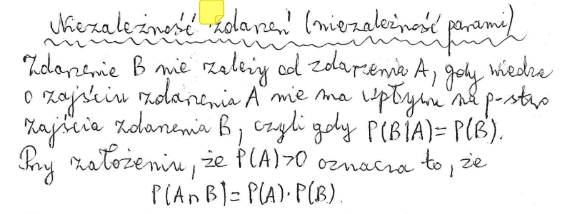 Niezależność zdarzeń (niezależność parami)
Zdarzenie B nie zależy od zdarzenia A, gdy wiedza
o zajściu zdarzenia A nie ma wpływu na p-stwo
zajścia zdarzenia B, czyli gdy P(B|A) = P(B).
Przy założeniu, że P(A)>0 oznacza to, że
P(A∩B) = P(A)·P(B).